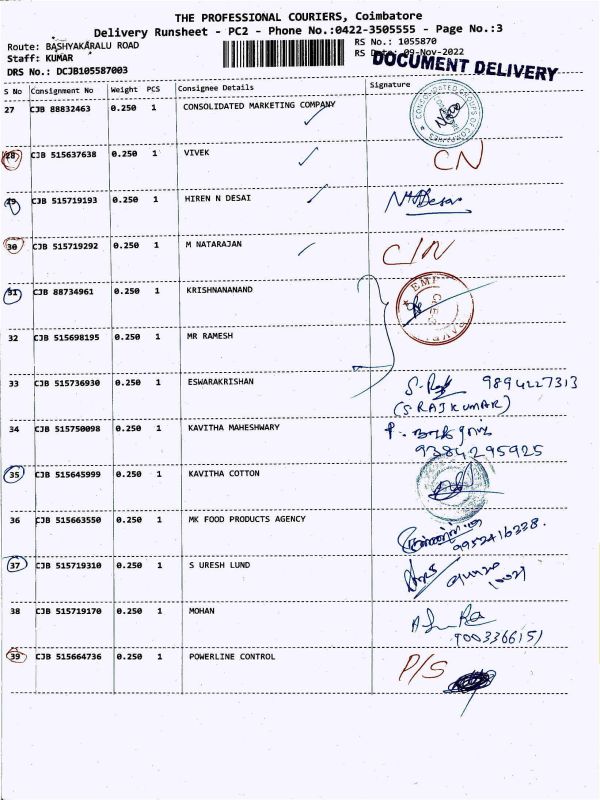 THE PROFESSIONAL COURIERS, Coimbatore
Delivery Runsheet - PC2 - Phone No.:0422-3505555 - Page No.:3
Route: BASHYAKARALU ROAD
RS No.: 1055870
Staff: KUMAR
RS Date: 09-Nov-2022
DOCUMENT DELIVERY
DRS No.: DCJB105587003
S No Consignment No Weight PCS Consignee Details Signature
27 CJB 88832463 0.250 1 CONSOLIDATED MARKETING COMPANY
28 CJB 515637638 0.250 1 VIVEK CN
29 CJB 515719193 0.250 1 HIREN N DESAI
30 CJB 515719292 0.250 1 M NATARAJAN C/N
31 CJB 88734961 0.250 1 KRISHNANANAND
32 CJB 515698195 0.250 1 MR RAMESH
33 CJB 515736930 0.250 1 ESWARAKRISHAN 9894227313
(S RAJKUMAR)
34 CJB 515750098 0.250 1 KAVITHA MAHESHWARY
9384295925
35 CJB 515645999 0.250 1 KAVITHA COTTON
36 CJB 515663550 0.250 1 MK FOOD PRODUCTS AGENCY
9952416338.
37 CJB 515719310 0.250 1 S URESH LUND
38 CJB 515719170 0.250 1 MOHAN
9003366151
39 CJB 515664736 0.250 1 POWERLINE CONTROL P/S